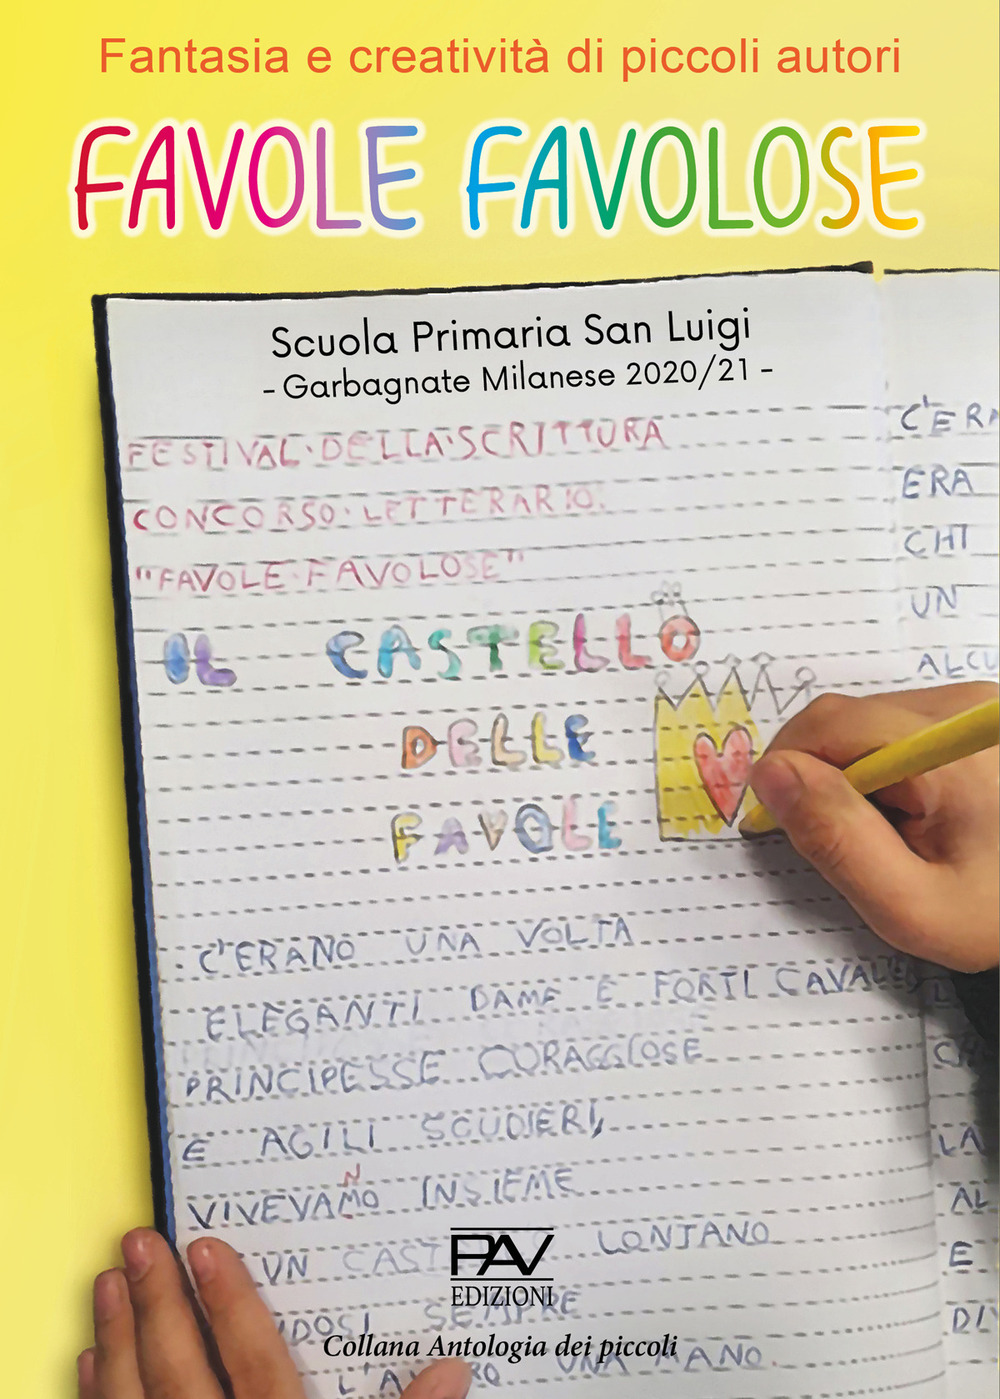 Fantasia e creatività di piccoli autori
FAVOLE FAVOLOSE
Scuola Primaria San Luigi
- Garbagnate Milanese 2020/21 -
FESTIVAL·DELLA·SCRITTURA
CONCORSO·LETTERARIO:
"FAVOLE·FAVOLOSE"
IL CASTELLO
DELLE
FAVOLE
C'ERANO UNA VOLTA
ELEGANTI DAME E FORTI CAVALE
PRINCIPESSE CORAGGIOSE
E AGILI SCUDIERI,
N
VIVEVAMO INSIEME
UN CAST LONTANO
DOSI SEMPRE
L'A RO UNA MANO.
C'ER
ERA
CHI
UN
ALCU
LA
AL
E
DI
PAV
EDIZIONI
Collana Antologia dei piccoli